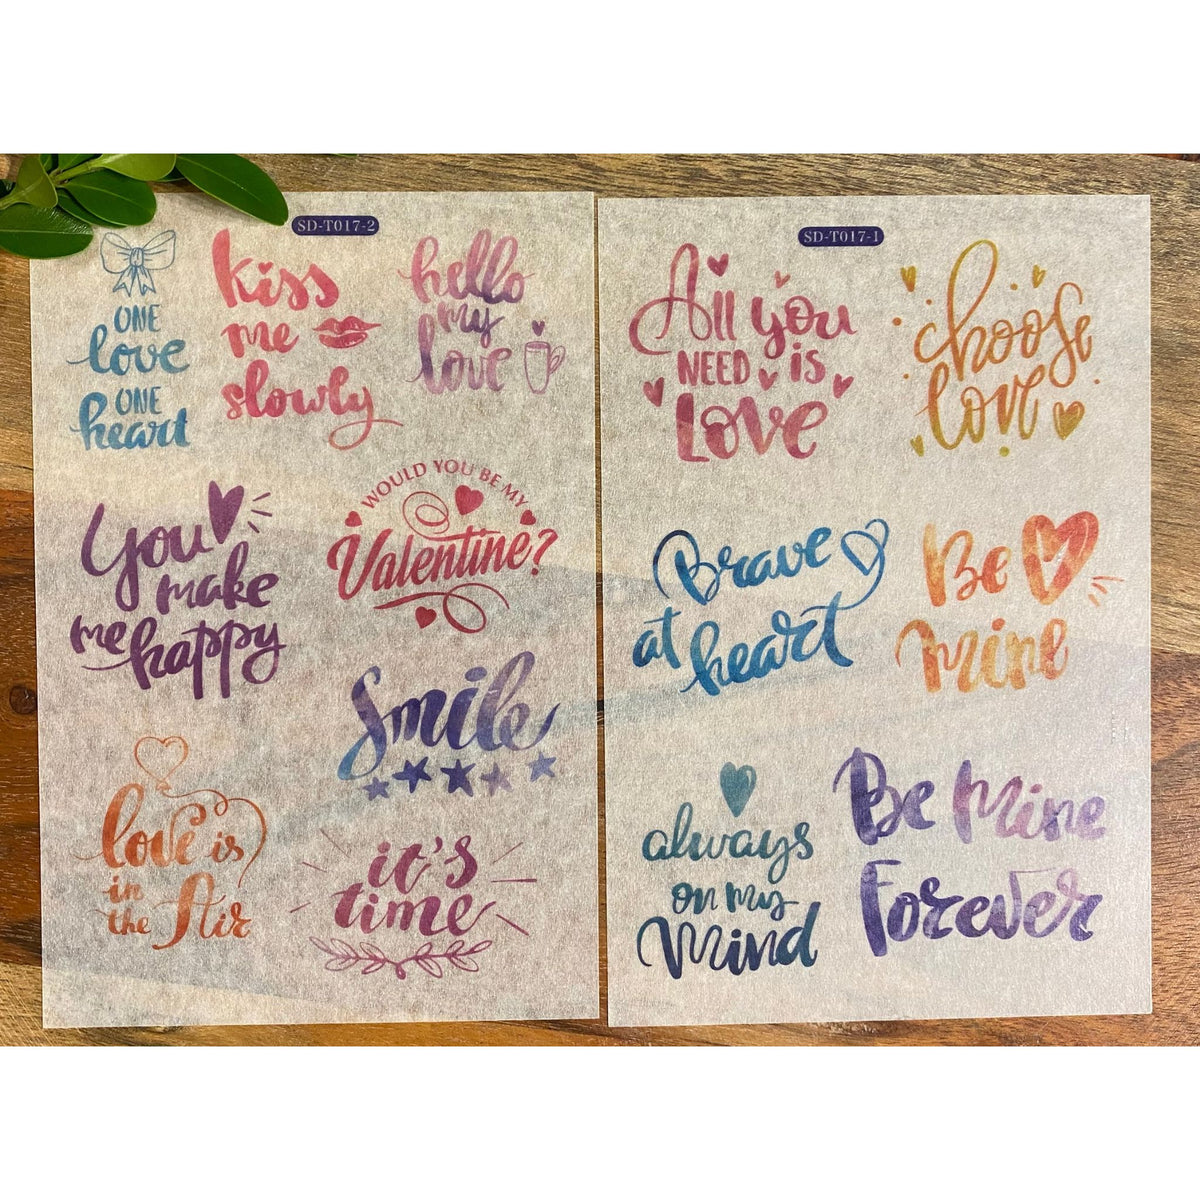 SD-T017-2
ONE
love
ONE
heart
kiss
me
slowly
hello
my
love
You
make
me happy
WOULD YOU BE MY
Valentine?
Smile
love is
in
the Air
it's
time
SD-T017-1
All you
NEED is
Love
choose
love
Brave
at heart
Be
mine
always
on my
Mind
Be Mine
Forever